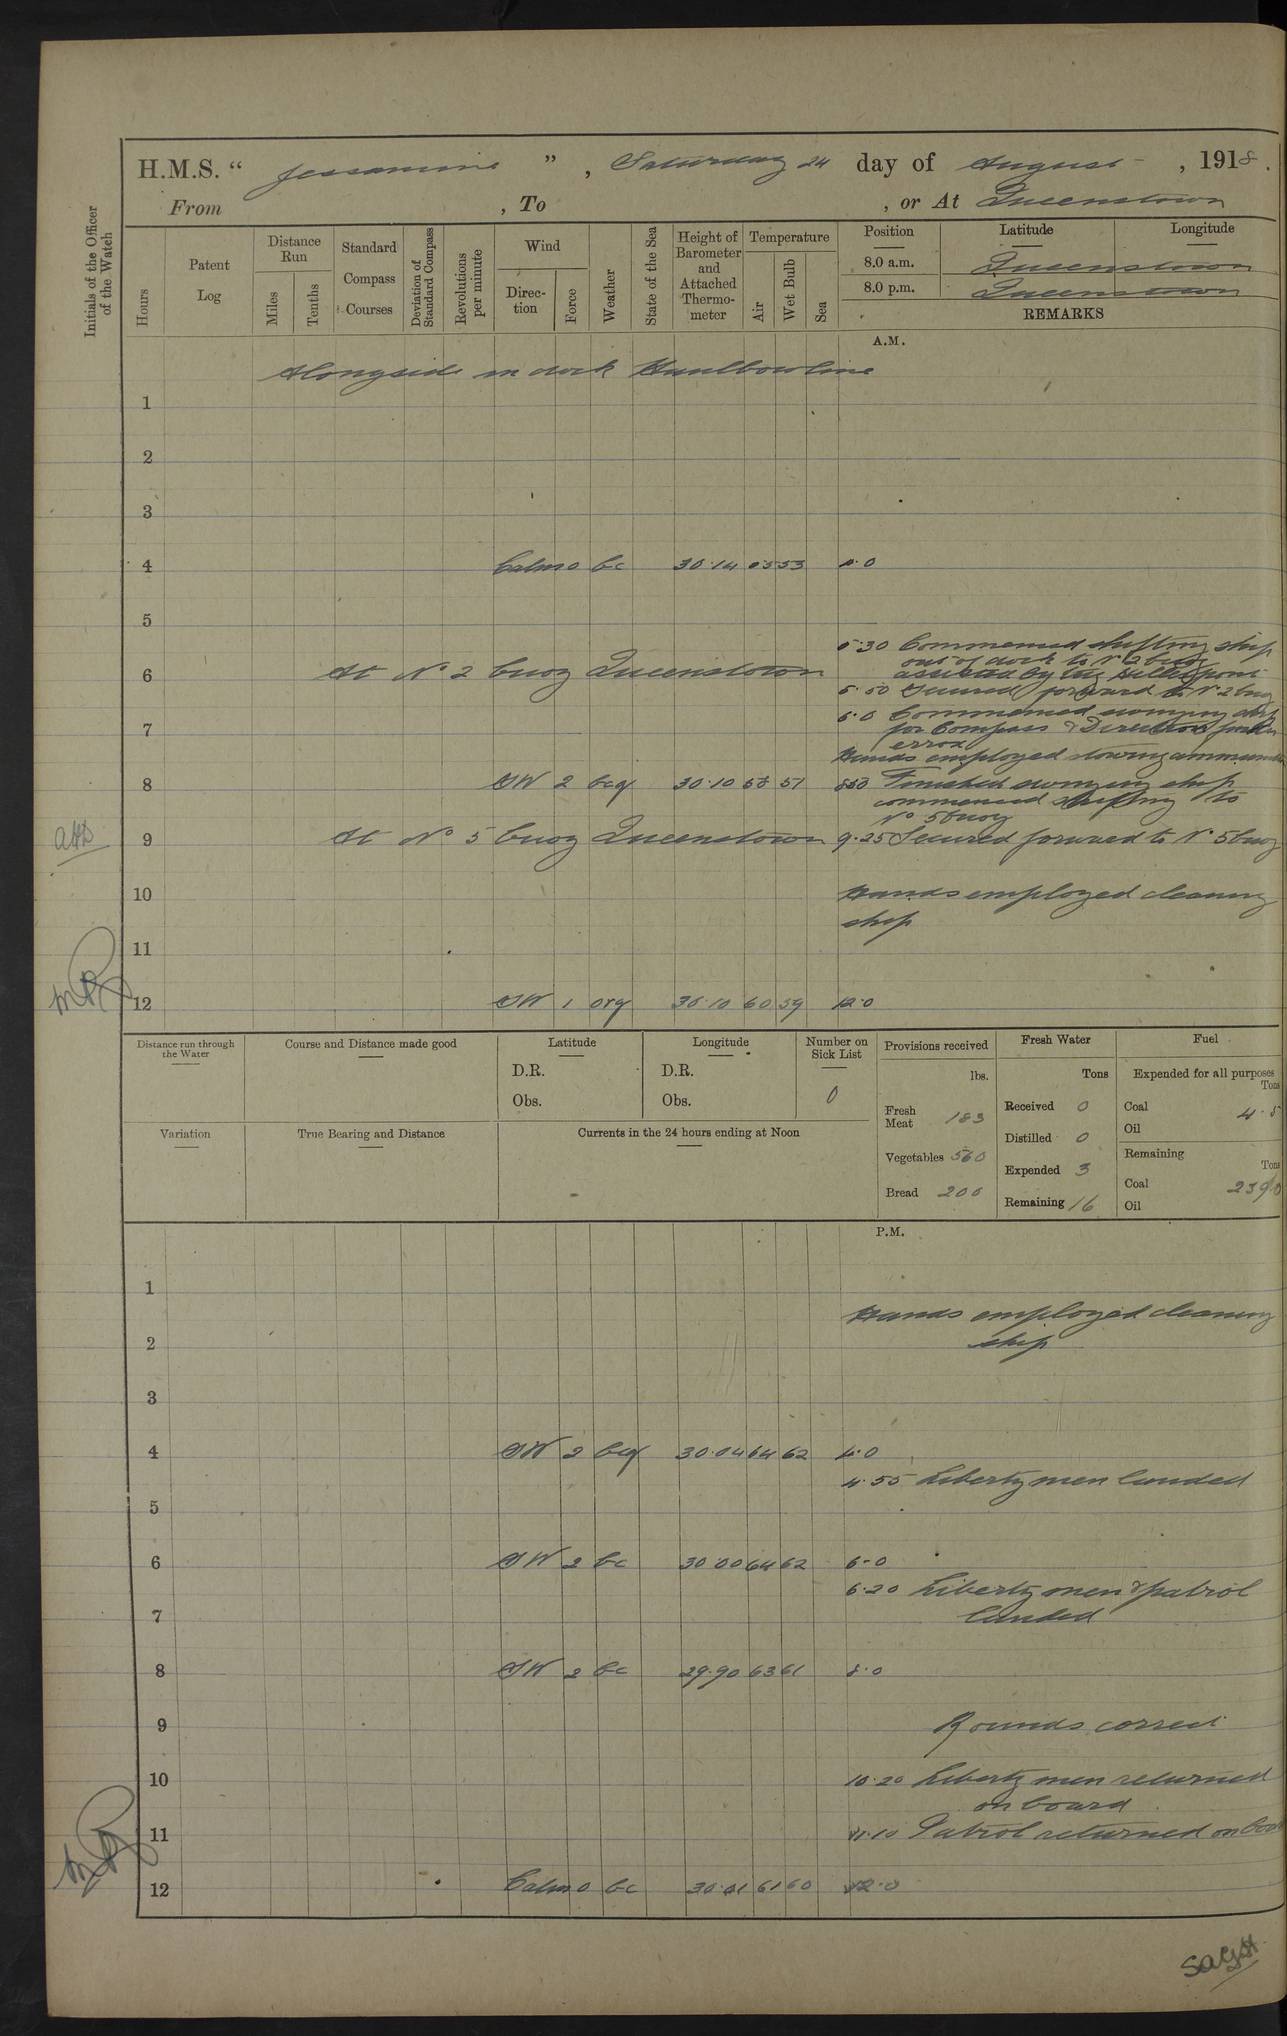 H.M.S. “ Jessamine ”, Saturday 24 day of August, 1918.
From , To , or At Queenstown
Initials of the Officer of the Watch
Hours
Patent Log
Distance Run
Miles
Tenths
Standard Compass Courses
Deviation of Standard Compass
Revolutions per minute
Wind
Direction
Force
Weather
State of the Sea
Height of Barometer and Attached Thermometer
Temperature
Air
Wet Bulb
Sea
Position Latitude Longitude
8.0 a.m. Queenstown
8.0 p.m. Queenstown
REMARKS
A.M.
Alongside in dock Haulbowline
1
2
3
4 Calm 0 bc 30.14 53 4.0
5
5.30 Commenced shifting ship
out of dock to No 2 buoy
assisted by tug
6 At No 2 buoy Queenstown
5.50 Secured forward to No 2 buoy
6.0 Commenced swinging ship
7 for Compass & Direction finder
error
Hands employed stowing ammunition
8 SW 2 bcq 30.10 58 57 8.50 Finished swinging ship
commenced shifting to
No 5 buoy
9 At No 5 buoy Queenstown 9.25 Secured forward to No 5 buoy
10 Hands employed cleaning
ship
11
12 SW 1 org 30.10 60 59 12.0
Distance run through the Water
Course and Distance made good
Latitude
D.R.
Obs.
Longitude
D.R.
Obs.
Number on Sick List
0
Provisions received
lbs.
Fresh Meat 183
Vegetables 560
Bread 200
Fresh Water
Tons
Received 0
Distilled 0
Expended 3
Remaining 16
Fuel
Expended for all purposes
Tons
Coal 4.5
Oil
Remaining
Tons
Coal 239.0
Oil
Variation
True Bearing and Distance
Currents in the 24 hours ending at Noon
P.M.
1
Hands employed cleaning
2 ship
3
4 SW 2 bcq 30.04 64 62 4.0
4.55 Liberty men landed
5
6 SW 2 bc 30.00 64 62 6.0
6.20 Liberty men & patrol
7 landed
8 SW 2 bc 29.90 63 61 8.0
9 Rounds correct
10 10.20 Liberty men returned
on board
11 11.10 Patrol returned on board
12 Calm 0 bc 30.01 61 60 12.0